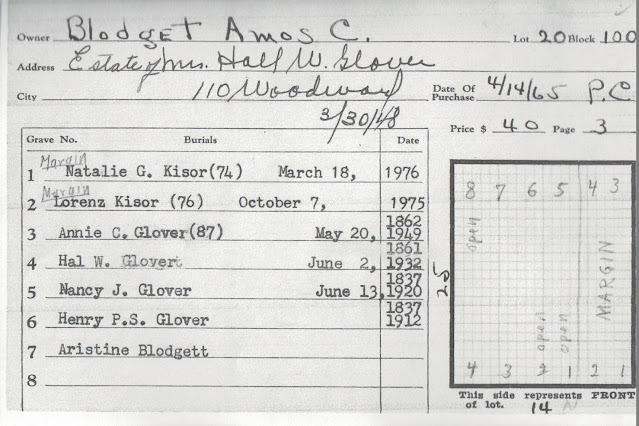 Owner Blodget Amos C. Lot 20 Block 100
Address Estate of Mrs. Hall W. Glover
City 110 Woodward
Date Of Purchase 4/14/65 P.C
3/30/48
Price $ 40 Page 3
Grave No. Burials Date
Margin
1 Natalie G. Kisor(74) March 18, 1976
Margin
2 Lorenz Kisor (76) October 7, 1975
3 Annie C. Glover(87) May 20, 1862 1949
4 Hal W. Glover June 2, 1861 1932
5 Nancy J. Glover June 13, 1837 1920
6 Henry P.S. Glover 1837 1912
7 Aristine Blodgett
8
8 7 6 5 4 3
open
MARGIN
25
open
open
4 3 2 1 2 1
This side represents FRONT
of lot. 14